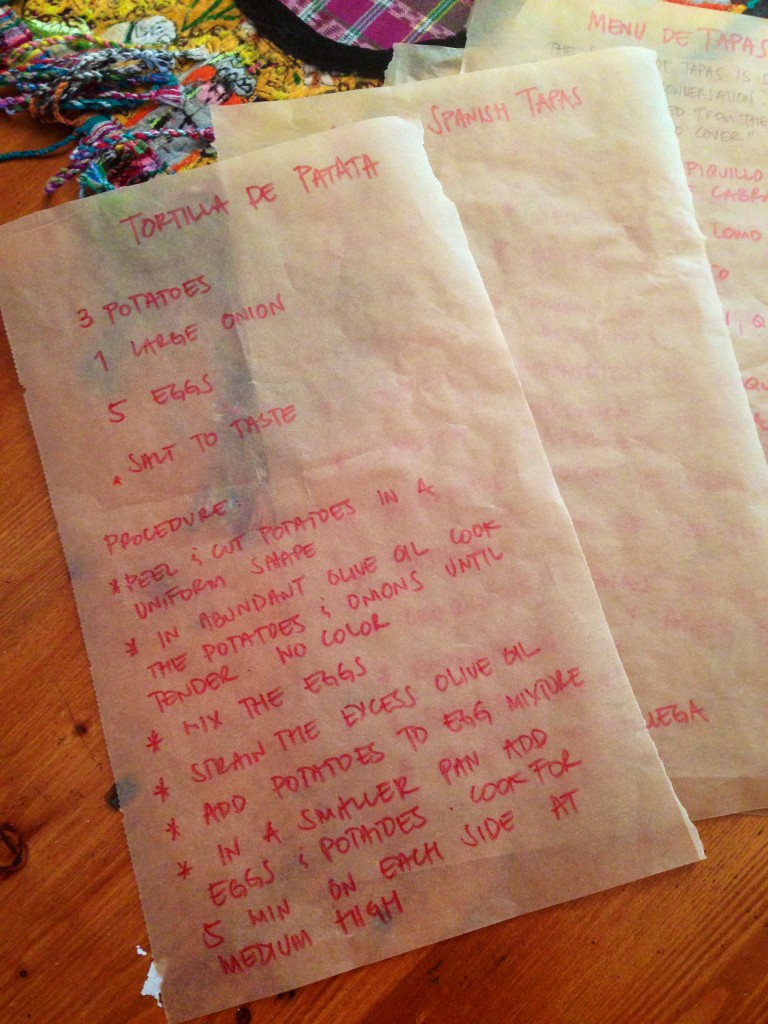 TORTILLA DE PATATA
3 POTATOES
1 LARGE ONION
5 EGGS
* SALT TO TASTE
PROCEDURE:
* PEEL & CUT POTATOES IN A
UNIFORM SHAPE
* IN ABUNDANT OLIVE OIL COOK
THE POTATOES & ONIONS UNTIL
TENDER. NO COLOR
* MIX THE EGGS
* STRAIN THE EXCESS OLIVE OIL
* ADD POTATOES TO EGG MIXTURE
* IN A SMALLER PAN ADD
EGGS & POTATOES. COOK FOR
5 MIN ON EACH SIDE AT
MEDIUM HIGH
SPANISH TAPAS
MENU DE TAPAS
THE
TAPAS IS
CONVERSATION
FROM THE
COVER"
PIQUILLO
CABRA
LOMO